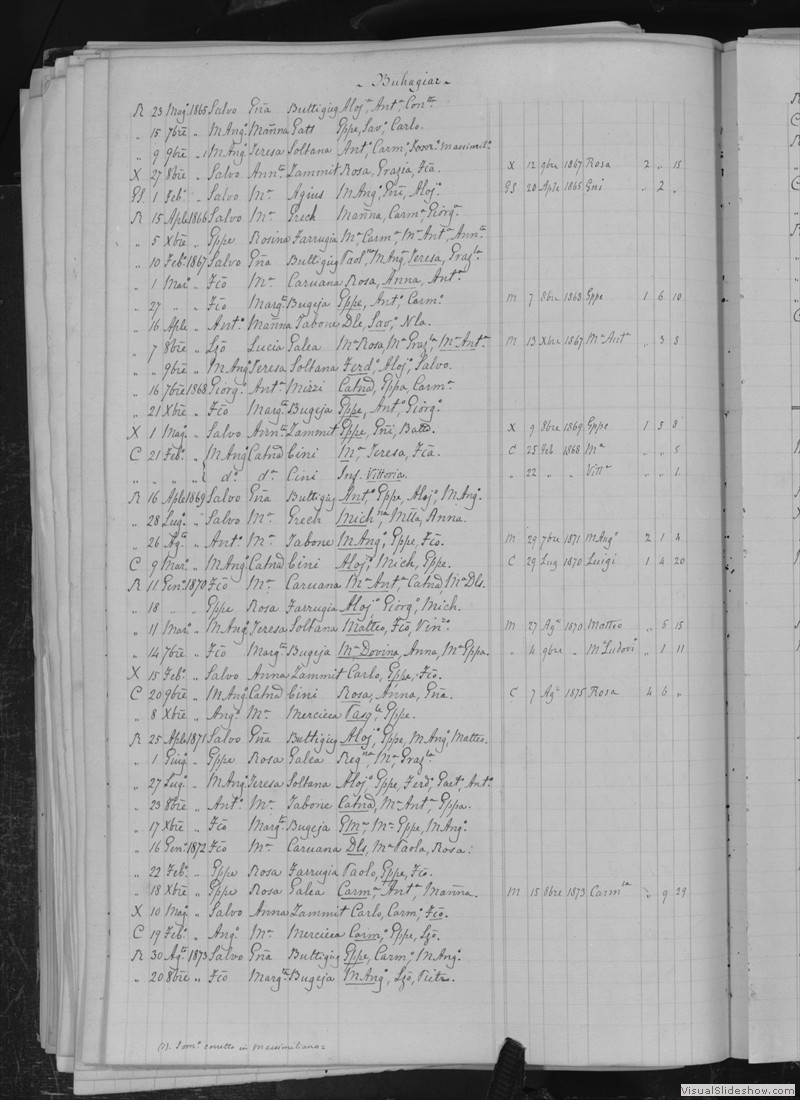 Buhagiar
R 23 Mag.º 1865 Salvo Gña Buttigieg Aloj.ª, Ant.ª, Con.tta
„ 15 7bre „ M Ang.º Mañna Gatt Gppe, Sav.º, Carlo.
„ 9 9bre „ M Ang.º Teresa Soltana Ant.º, Carm.º, Dom.º Massimil.º
X 27 8bre „ Salvo Ann.ª Zammit Rosa, Grazia, Fca. X 12 9bre 1867 Rosa 2 „ 15
GS 1 Feb.º „ Salvo M.ª Agius M Ang.º, Gñi, Aloj.º GS 20 Aple 1865 Gñi „ 2 „
R 15 Aple 1866 Salvo M.ª Grech Mañna, Carm.ª, Giorg.ª
„ 5 Xbre „ Gppe Rosina Farrugia M.ª Carm.ª, M.ª Ant.ª, Ann.ª
„ 10 Feb.º 1867 Salvo Gña Buttigieg Paol.na, M Ang.ª, Teresa, Graz.la
„ 1 Mar.º „ Fco M.ª Caruana Rosa, Anna, Ant.ª
„ 27 „ „ Fco Marg.ta Bugeja Gppe, Ant.º, Carm.º M 7 8bre 1868 Gppe 1 6 10
„ 16 Aple „ Ant.º Mañna Tabone Dle, Sav.º, Nla.
„ 7 8bre „ Lzo Lucia Galea M.ª Rosa, M.ª Graz.la, M.ª Ant.ª M 13 Xbre 1867 M.ª Ant.ª „ 3 8
„ „ 9bre „ M Ang.º Teresa Soltana Ferd.º, Aloj.º, Salvo.
„ 16 7bre 1868 Giorg.º Ant.ª Mizzi Catña, Gppa, Carm.ª
„ 21 Xbre „ Fco Marg.ta Bugeja Gppe, Ant.º, Giorg.º
X 1 Mag.º „ Salvo Ann.ª Zammit Gppe, Gñi, Batta. X 9 8bre 1869 Gppe 1 5 8
C 21 Feb.º „ M Ang.º Catña Cini M.ª Teresa, Fca. C 25 Feb 1868 M.ª „ „ 5
„ „ „ „ d.º d.ª Cini Inf. Vittoria. „ 22 „ „ Vitt.ª „ „ 1
R 16 Aple 1869 Salvo Gña Buttigieg Ant.º, Gppe, Aloj.º, M Ang.º
„ 28 Lug.º „ Salvo M.ª Grech Mich.na, Mlla, Anna.
„ 26 Ag.to „ Ant.º M.ª Tabone M Ang.º, Gppe, Fco. M 29 7bre 1871 M Ang.º 2 1 4
C 9 Mar.º „ M Ang.º Catña Cini Aloj.º, Mich, Gppe. C 29 Lug 1870 Luigi 1 4 20
R 11 Gen.º 1870 Fco M.ª Caruana M.ª Ant.ª, Catña, M.ª Dls.
„ 18 „ „ Gppe Rosa Farrugia Aloj.º, Giorg.º, Mich.
„ 11 Mar.º „ M Ang.º Teresa Soltana Matteo, Fco, Vin.zo M 27 Ag.to 1870 Matteo „ 5 15
„ 14 7bre „ Fco Marg.ta Bugeja M.ª Dovina, Anna, M.ª Gppa. „ 4 9bre „ M.ª Ludovi.ª „ 1 11
X 15 Feb.º „ Salvo Anna Zammit Carlo, Gppe, Fco.
C 20 9bre „ M Ang.º Catña Cini Rosa, Anna, Gña. C 7 Ag.to 1875 Rosa 4 6 „
„ 8 Xbre „ Ang.º M.ª Mercieca Pasq.le, Gppe.
R 25 Aple 1871 Salvo Gña Buttigieg Aloj.º, Gppe, M Ang.º, Matteo.
„ 1 Giug.º „ Gppe Rosa Galea Reg.na, M.ª, Graz.la
„ 27 Lug.º „ M Ang.º Teresa Soltana Aloj.º, Gppe, Ferd.º, Gaet.º, Ant.º
„ 23 8bre „ Ant.º M.ª Tabone Catña, M.ª Ant.ª, Gppa.
„ 17 Xbre „ Fco Marg.ta Bugeja Gmª, M.ª Gppe, M Ang.º
„ 16 Gen.º 1872 Fco M.ª Caruana Dls, M.ª Paola, Rosa.
„ 22 Feb.º „ Gppe Rosa Farrugia Paolo, Gppe, Fco.
„ 18 Xbre „ Gppe Rosa Galea Carm.ª, Ant.ª, Mañna. M 15 8bre 1873 Carm.la „ 9 29
X 10 Mag.º „ Salvo Anna Zammit Carlo, Carm.º, Fco.
C 19 Feb.º „ Ang.º M.ª Mercieca Carm.º, Gppe, Lzo.
R 30 Ag.to 1873 Salvo Gña Buttigieg Gppe, Carm.º, M Ang.º
„ 20 8bre „ Fco Marg.ta Bugeja M Ang.º, Lzo, Pietro.
(1). Dom.º corretto in Massimiliano
VisualSlideshow.com